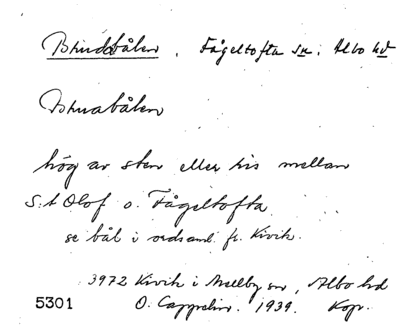 Bhndabålen. Fågeltofta sn. Albo hd
Bhnabålen
hög av sten eller ris mellan
S:t Olof o. Fågeltofta.
se bål i ordsaml. fr. Kivik.
3972 Kivik i Mellby sn, Albo hd
5301 O. Cappelin. 1939. Kop.